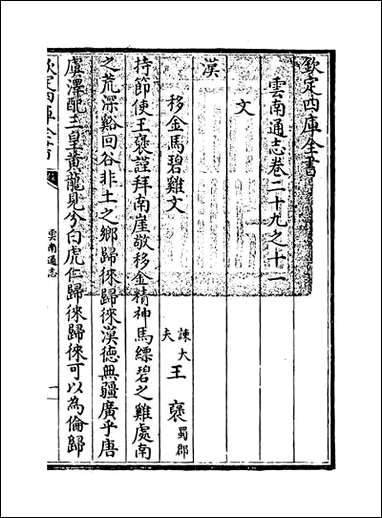 欽定四庫全書
雲南通志卷二十九之十一
文
漢
移金馬碧雞文
諫大夫
王褒
蜀郡
持節使王褒謹拜南崖敬移金精神馬縹碧之雞處南
之荒深谿回谷非土之鄉歸徠歸徠漢德無疆廣乎唐
虞澤配三皇黃龍見兮白虎仁歸徠歸徠可以為倫歸
欽定四庫全書
雲南通志
一